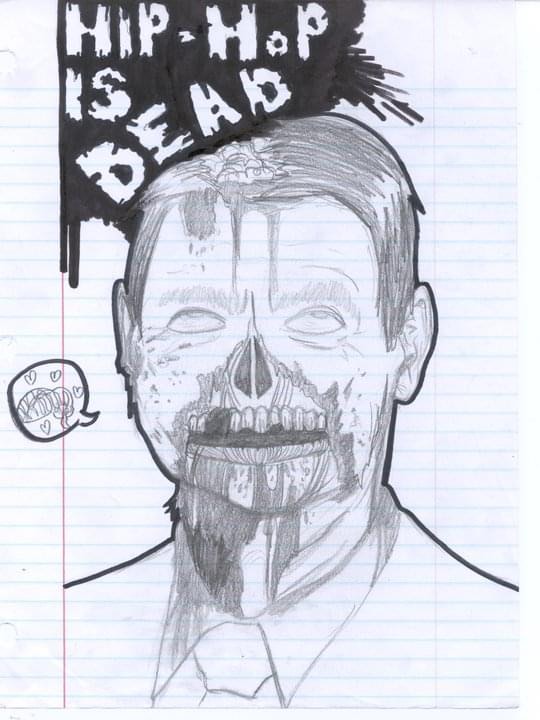 HIP-HOP
IS
DEAD